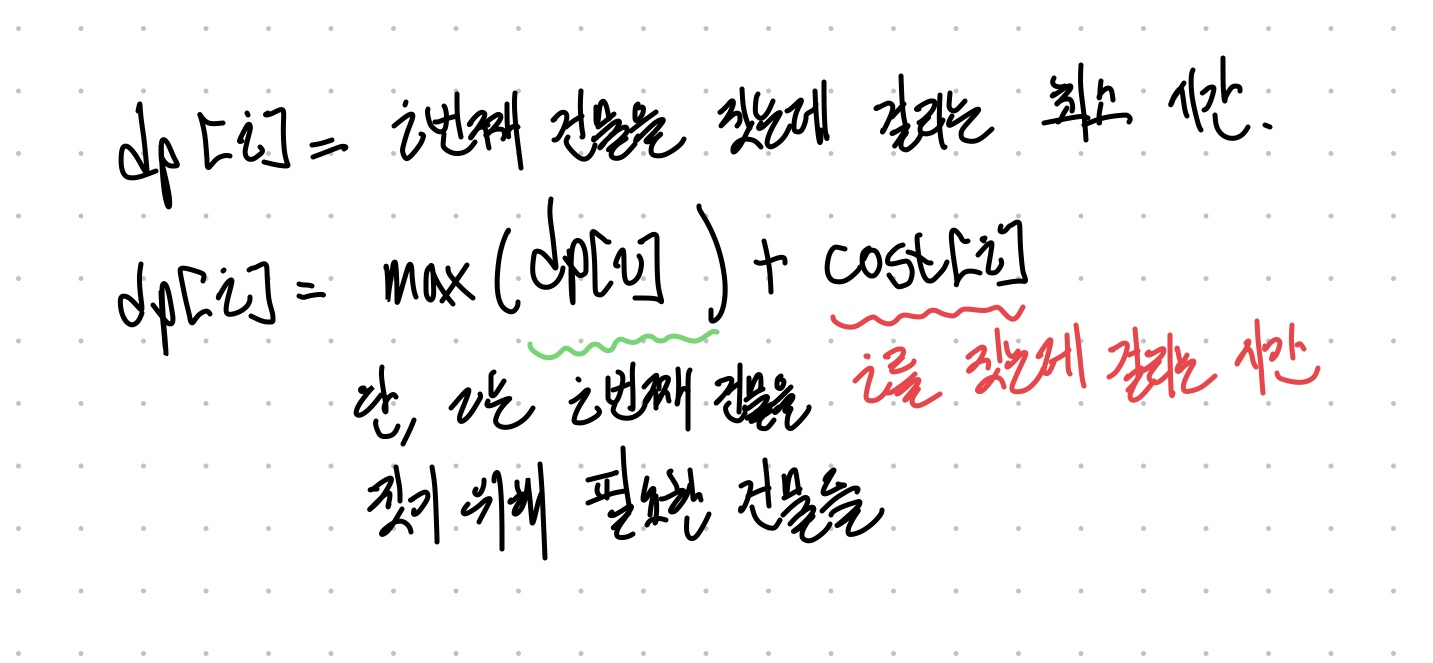 dp[i] = i번째 건물을 짓는데 걸리는 최소 시간.
dp[i] = max(dp[u]) + cost[i]
i를 짓는데 걸리는 시간
단, u는 i번째 건물을
짓기 위해 필요한 건물들